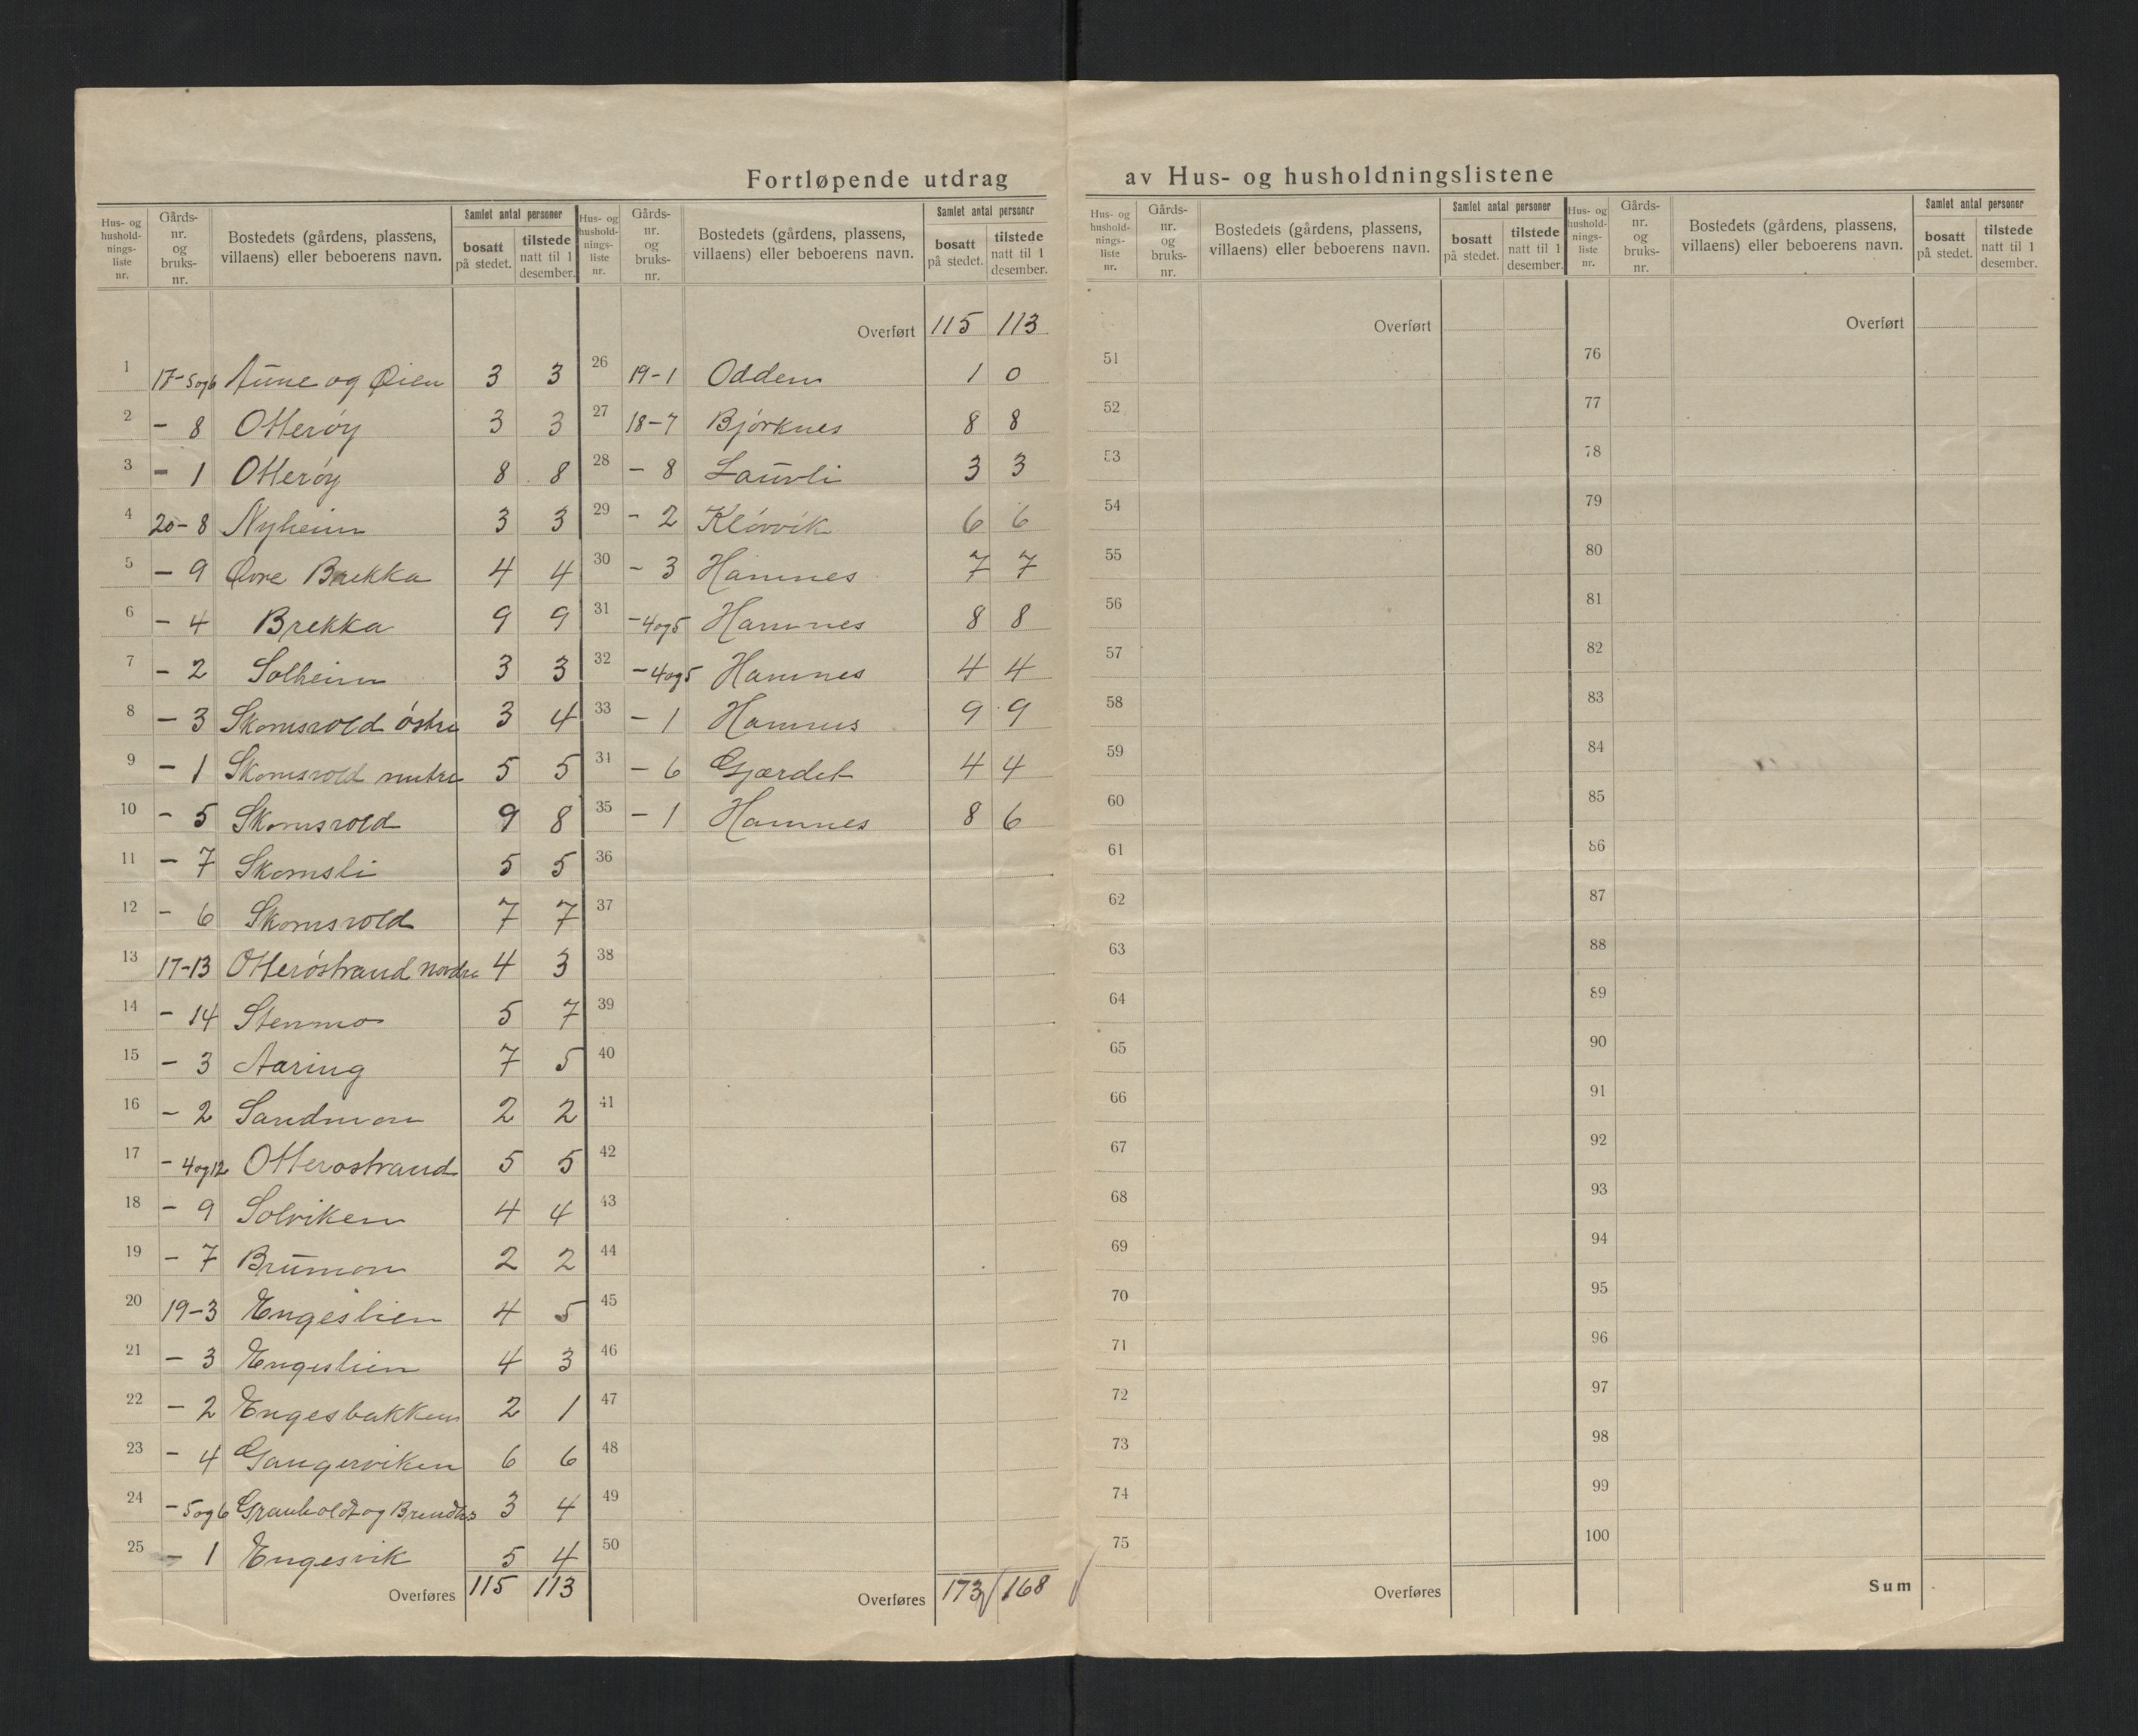 Fortløpende utdrag av Hus- og husholdningslistene
Hus- og hushold-nings-liste nr. Gårds-nr. og bruks-nr. Bostedets (gårdens, plassens, villaens) eller beboerens navn. Samlet antal personer bosatt på stedet. tilstede natt til 1 desember.
1 17-5og6 Aune og Øien 3 3
2 - 8 Otterøy 3 3
3 - 1 Otterøy 8 8
4 20-8 Nyheim 3 3
5 - 9 Øvre Brekka 4 4
6 - 4 Brekka 9 9
7 - 2 Solheim 3 3
8 - 3 Skomsvold østre 3 4
9 - 1 Skomsvold 5 5
10 - 5 Skomsvold 9 8
11 - 7 Skomsli 5 5
12 - 6 Skomsvold 7 7
13 17-13 Otterøstrand nordre 4 3
14 - 14 Stenmo 5 7
15 - 3 Aaring 7 5
16 - 2 Sandmon 2 2
17 - 4og12 Otterostrand 5 5
18 - 9 Solviken 4 4
19 - 7 Brumon 2 2
20 19-3 Engeslien 4 5
21 - 3 Engeslien 4 3
22 - 2 Engesbakken 2 1
23 - 4 Gangerviken 6 6
24 - 5og6 Granholdt og 3 4
25 - 1 Engesvik 5 4
Overføres 115 113
Hus- og hushold-nings-liste nr. Gårds-nr. og bruks-nr. Bostedets (gårdens, plassens, villaens) eller beboerens navn. Samlet antal personer bosatt på stedet. tilstede natt til 1 desember.
Overført 115 113
26 19-1 Odden 1 0
27 18-7 Bjørknes 8 8
28 - 8 Lauvli 3 3
29 - 2 Kløvvik 6 6
30 - 3 Hamnes 7 7
31 - 4og5 Hamnes 8 8
32 - 4og5 Hamnes 4 4
33 - 1 Hamnes 9 9
34 - 6 Gjærdet 4 4
35 - 1 Hamnes 8 6
36
37
38
39
40
41
42
43
44
45
46
47
48
49
50
Overføres 173 168
Hus- og hushold-nings-liste nr. Gårds-nr. og bruks-nr. Bostedets (gårdens, plassens, villaens) eller beboerens navn. Samlet antal personer bosatt på stedet. tilstede natt til 1 desember.
Overført
51
52
53
54
55
56
57
58
59
60
61
62
63
64
65
66
67
68
69
70
71
72
73
74
75
Overføres
Hus- og hushold-nings-liste nr. Gårds-nr. og bruks-nr. Bostedets (gårdens, plassens, villaens) eller beboerens navn. Samlet antal personer bosatt på stedet. tilstede natt til 1 desember.
Overført
76
77
78
79
80
81
82
83
84
85
86
87
88
89
90
91
92
93
94
95
96
97
98
99
100
Sum